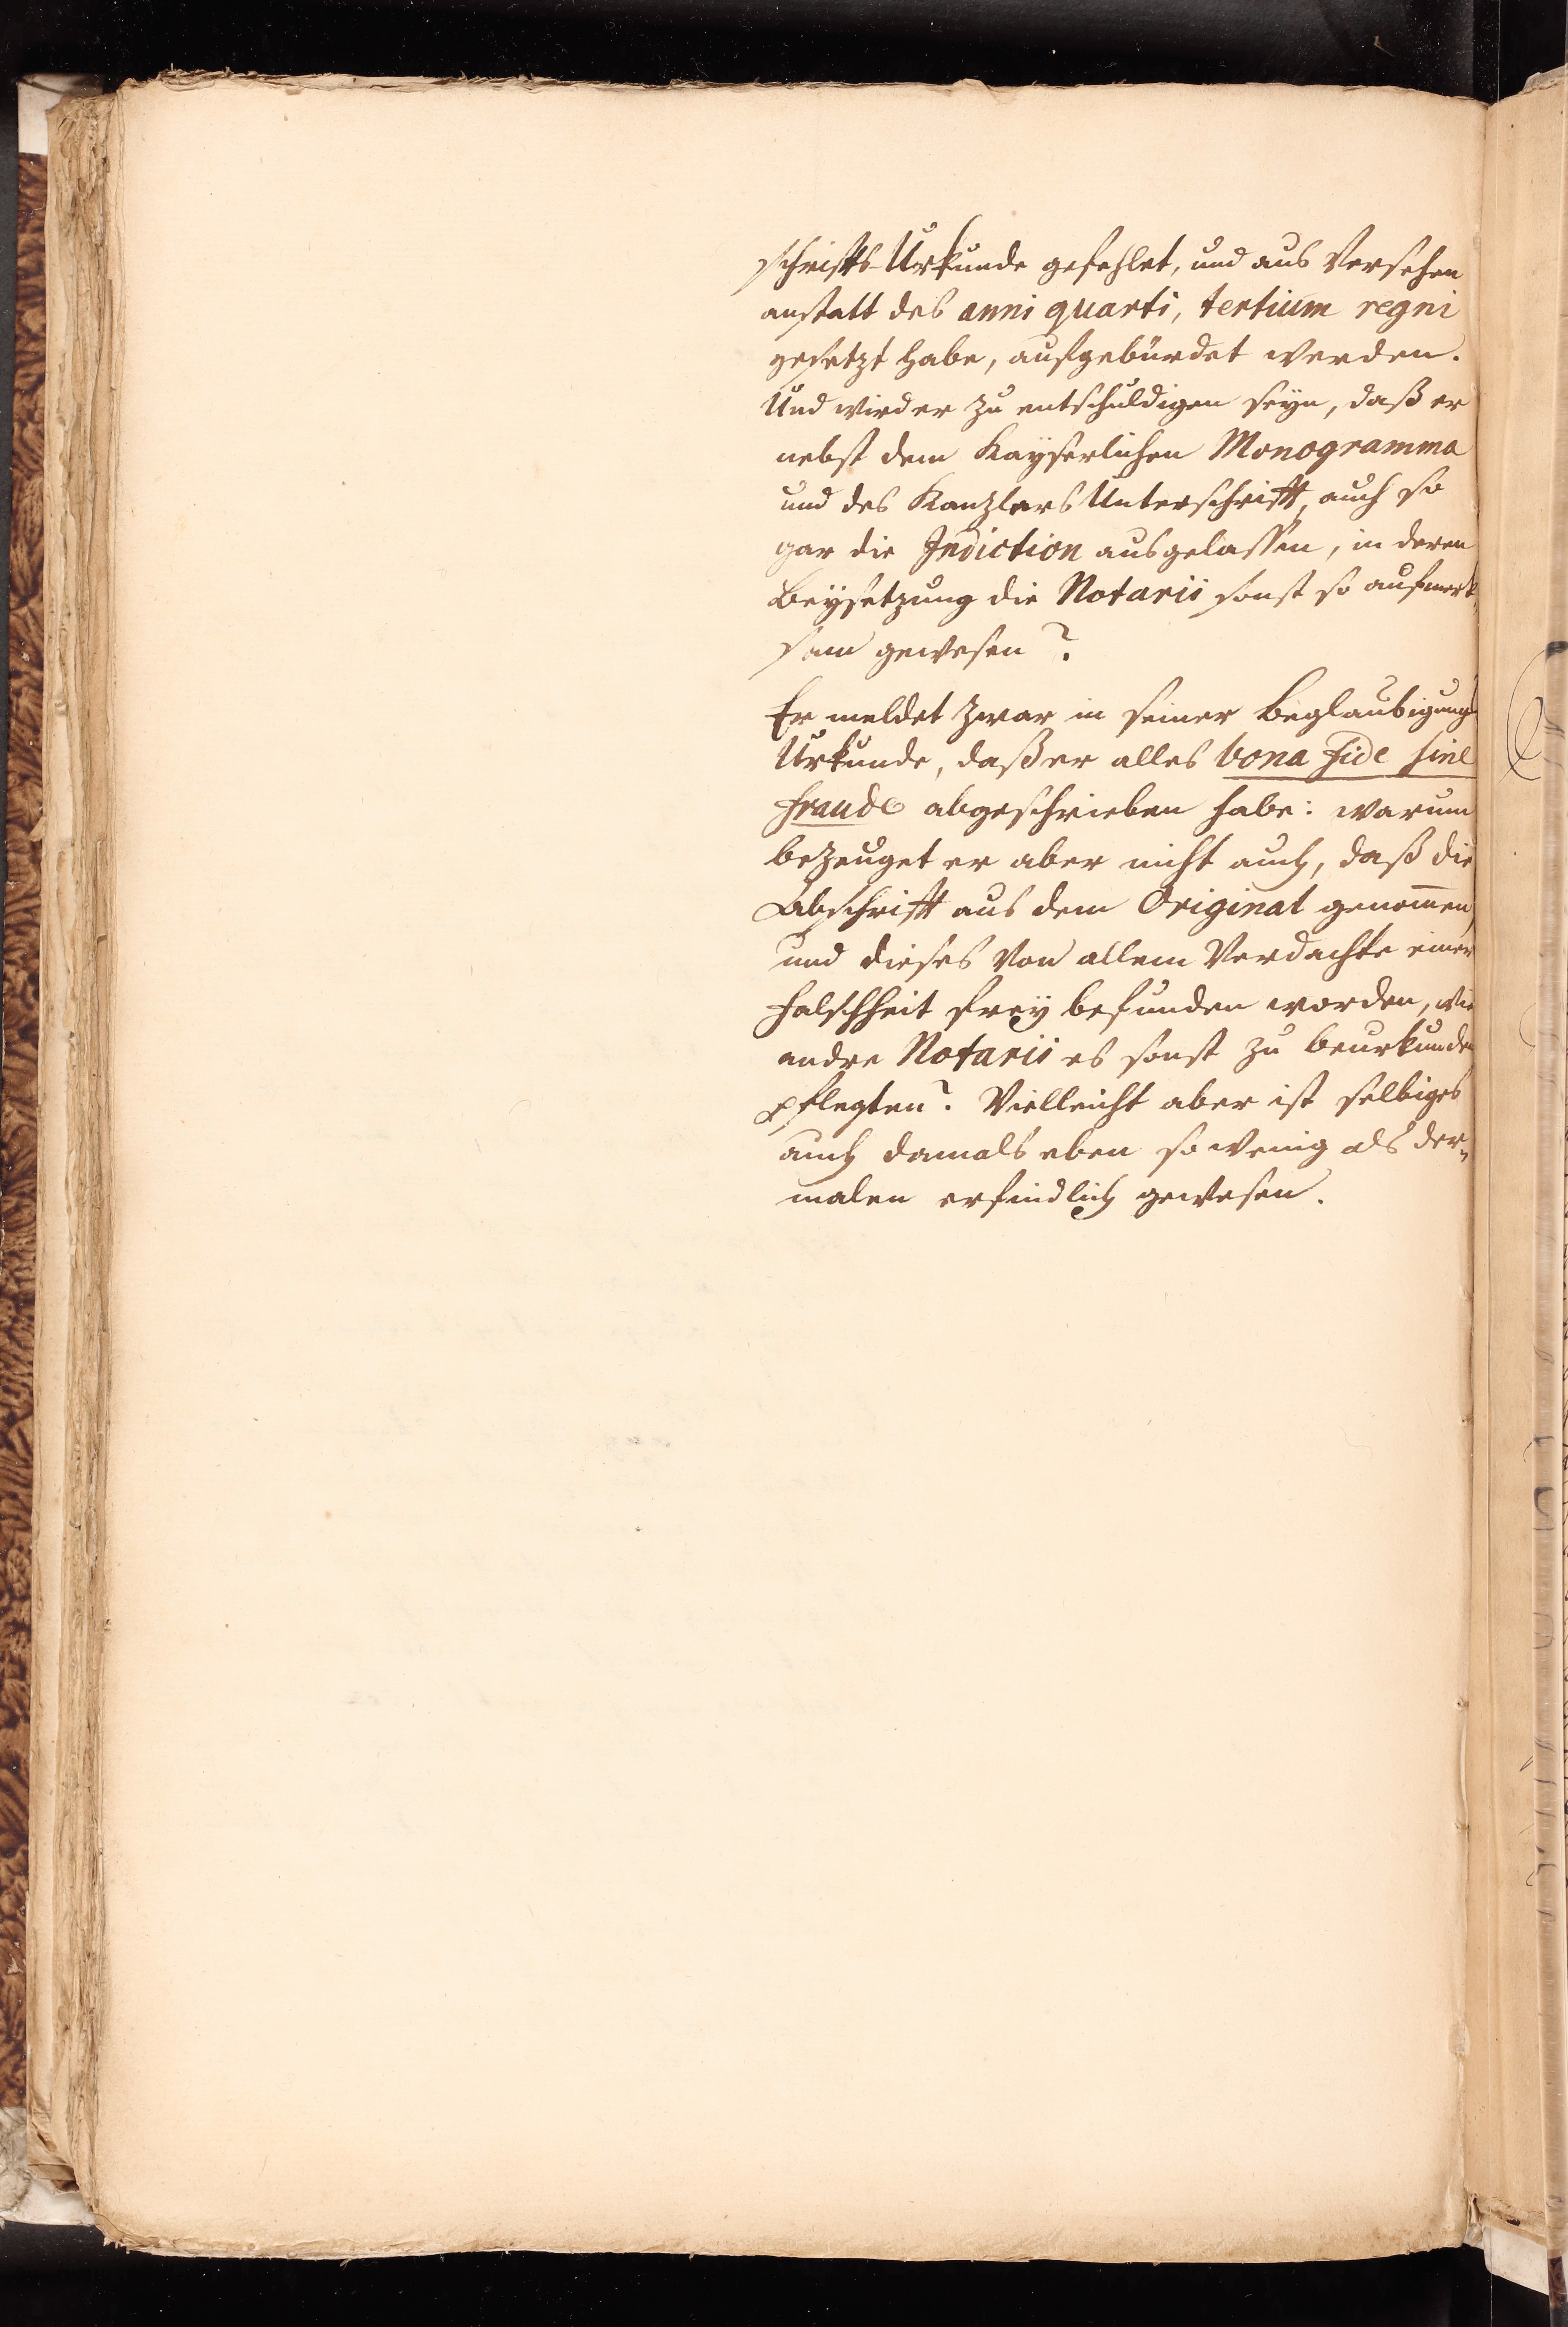 schriffts-Urkunde gefehlet, und aus Versehen
anstatt des anni quarti, tertium regni
gesetzt habe, aufgebürdet werden.
Und wird er zu entschuldigen seyn, daß er
nebst dem Kayserlichen Monogramma
und des Kanzlers Unterschrifft, auch so
gar die Indiction ausgelassen, in deren
Beysetzung die Notarii sonst so aufmerk,
sam gewesen?
Er meldet zwar in seiner Beglaubigungs
Urkunde, daß er alles bona fide sine
fraude abgeschrieben habe: warum
bezeuget er aber nicht auch, daß die
Abschrifft aus dem Original genom̅en,
und dieses von allem Verdachte einer
Falschheit frey befunden worden, wie
andre Notarii es sonst zu beurkunden
pflegten? Vielleicht aber ist selbiges
auch damals eben so wenig als der„
malen erfindlich gewesen.